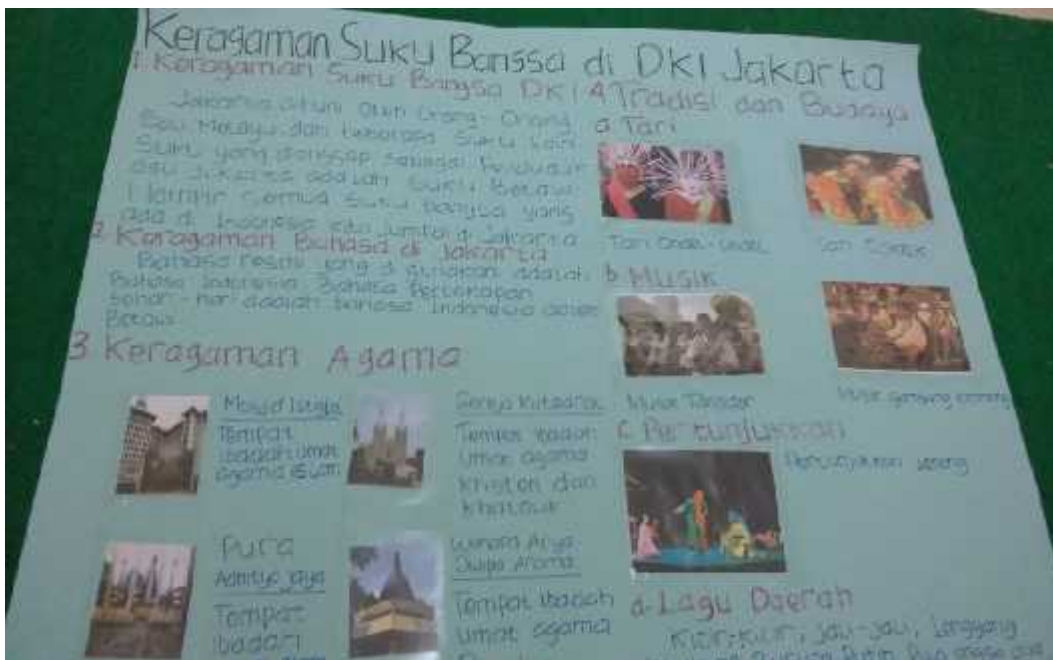 Keragaman Suku Bangsa di DKI Jakarta
1. Keragaman Suku Bangsa DKI
Jakarta dihuni oleh orang-orang
dan beberapa Suku lain
Suku yang dianggap sebagai Penduduk
asli Jakarta adalah Suku Betawi
Hampir semua Suku bangsa yang
ada di Indonesia ada di Jakarta
2. Keragaman Bahasa di Jakarta
Bahasa resmi yang di gunakan adalah
Bahasa Indonesia. Bahasa Percakapan
adalah bahasa Indonesia
Betawi
3 Keragaman Agama
Masjid Istiqlal
Tempat
ibadah umat
agama islam
Gereja
Tempat ibadah
umat agama
Kristen dan
Pura
Adhitya jaya
Tempat
ibadah
Arya
Dwipa
Tempat ibadah
umat agama
4 Tradisi dan Budaya
a Tari
Tari Ondel-Ondel
Tari
b. Musik
Musik Tanjidor
Musik gambang kromong
c. Pertunjukkan
Pertunjukkan lenong
d. Lagu Daerah
Kicir-kicir, Jali-Jali, Lenggang